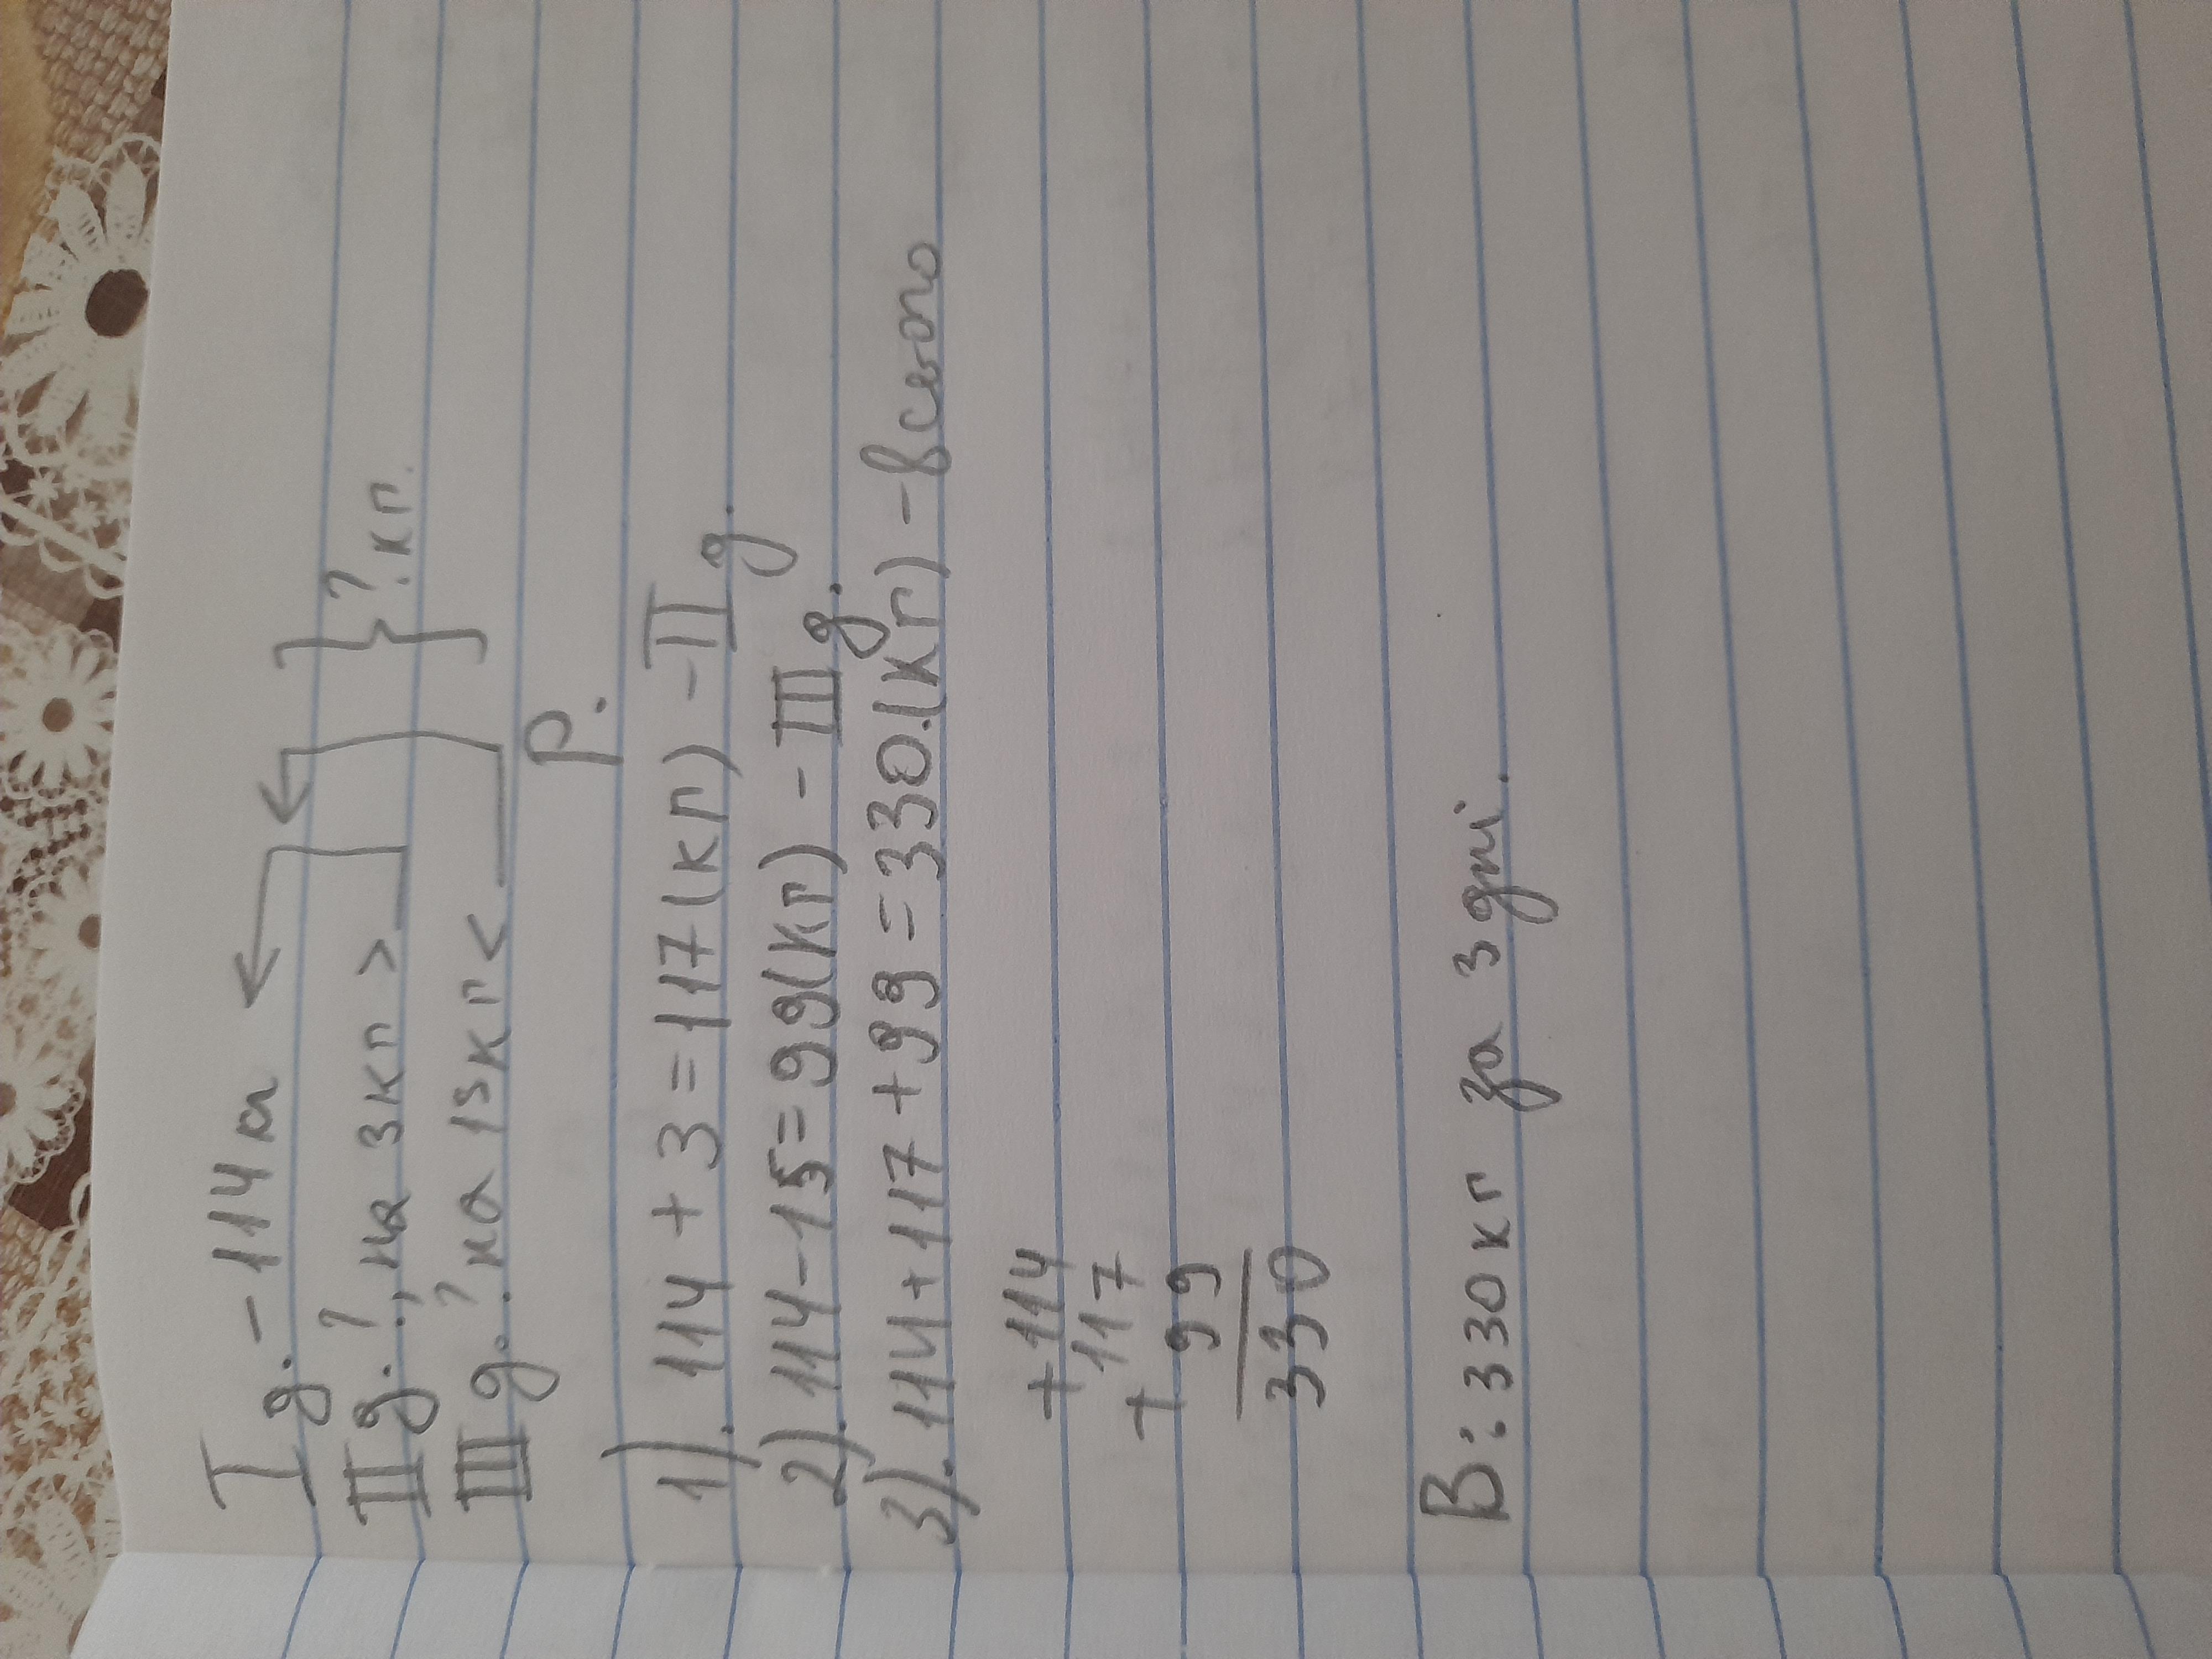 I д. - 114 к
II д. ?, на 3 кг >
III д. ? на 15 кг <
} ? кг.
Р.
1). 114 + 3 = 117 (кг) - II д.
2). 114 - 15 = 99 (кг) - III д.
3). 114 + 117 + 99 = 330. (кг) - всього
+ 114
117
+ 99
330
В: : 330 кг за 3 дні.